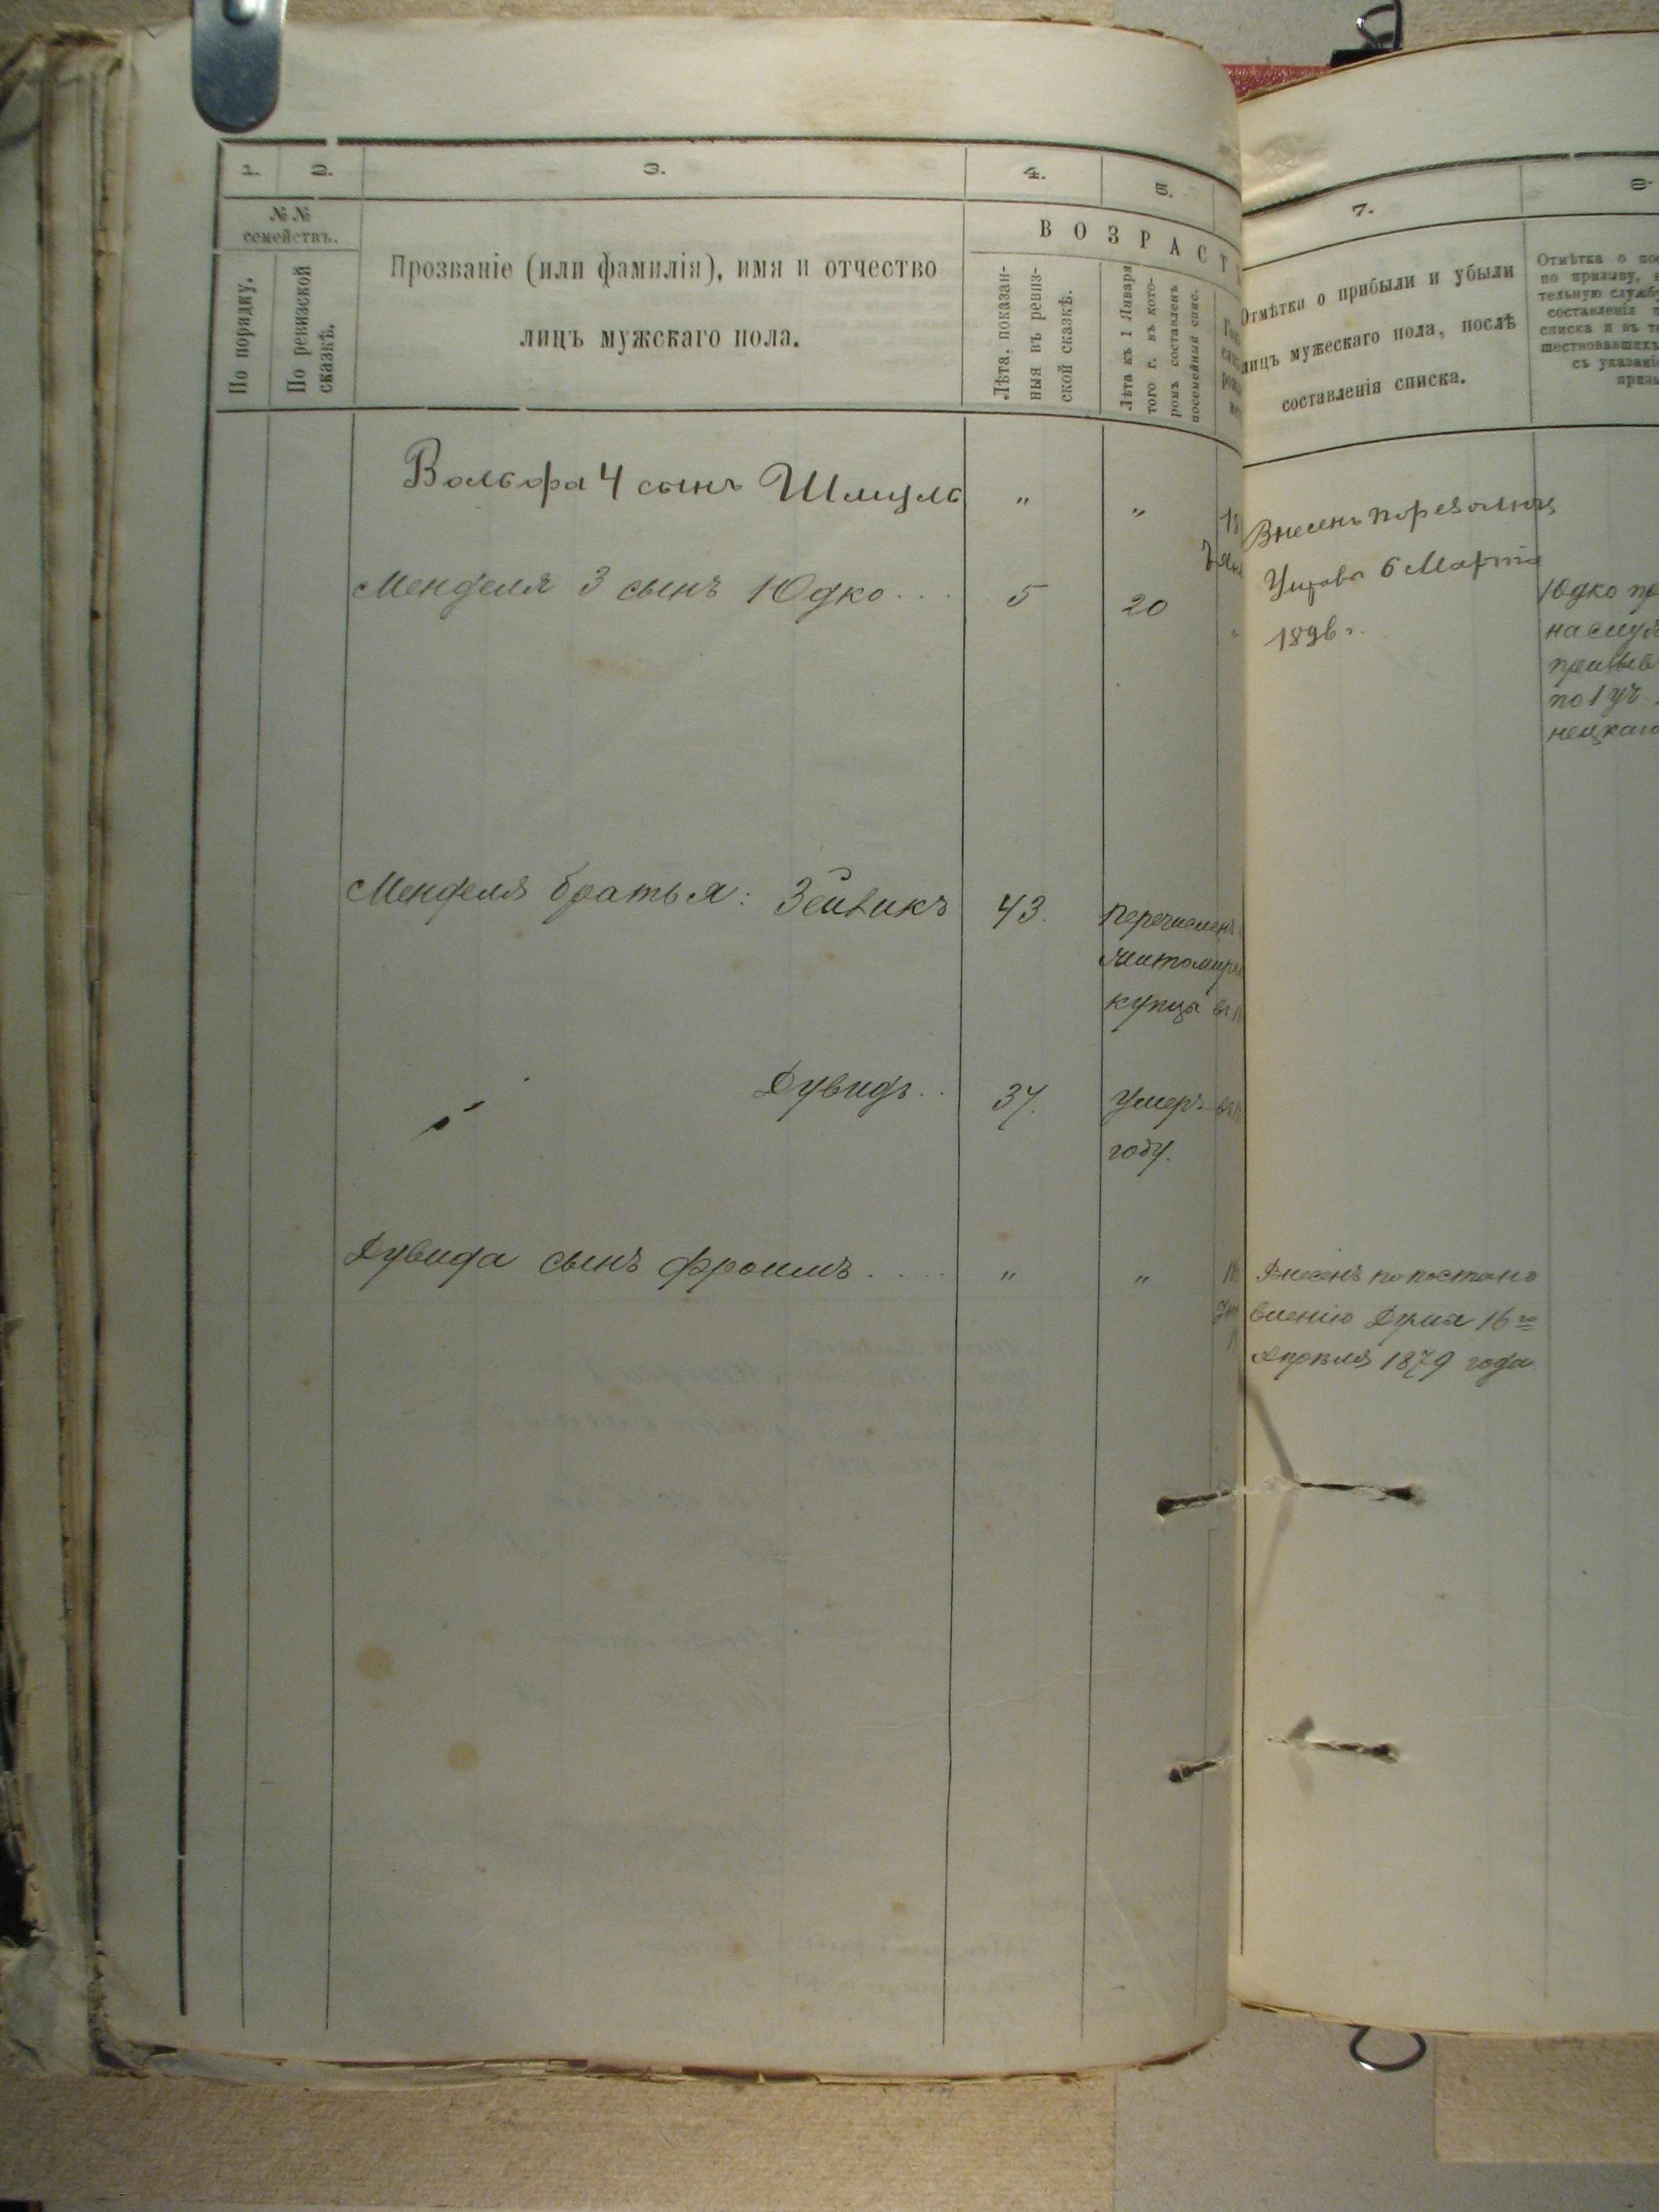 1.
2.
3.
4.
5.
№ №
семействъ.
По порядку.
По ревизской
сказкѣ.
Прозваніе (или фамилія), имя и отчество
лицъ мужскаго пола.
ВОЗРАСТ
Лѣта, показан-
ныя въ ревиз-
ской сказкѣ.
Лѣта къ 1 Января
того г. въ кото-
ромъ составленъ
посемейный спис.
Вольфа 4 сынъ Шмуль " "
Менделя 3 сынъ Юдко . . . 5 20
Менделя братья: Зейликъ 43.
Перечисленъ
купцы въ
Дувидъ . . 37.
Умеръ въ
году.
Дувида сынъ Фроимъ . . . . " "
7.
8.
Отмѣтка о прибыли и убыли
лицъ мужескаго пола, послѣ
составленія списка.
Отмѣтка о пос
по призыву, 
тельную службу
составленія п
списка и въ те
шествовавшихъ
съ указані
призы
Внесенъ по
6 Марта
1896 г.
Юдко пр
на служ
по 1 уч.
нецкаго
Внесенъ по постано
вленію Думы 16го
Апрѣля 1879 года